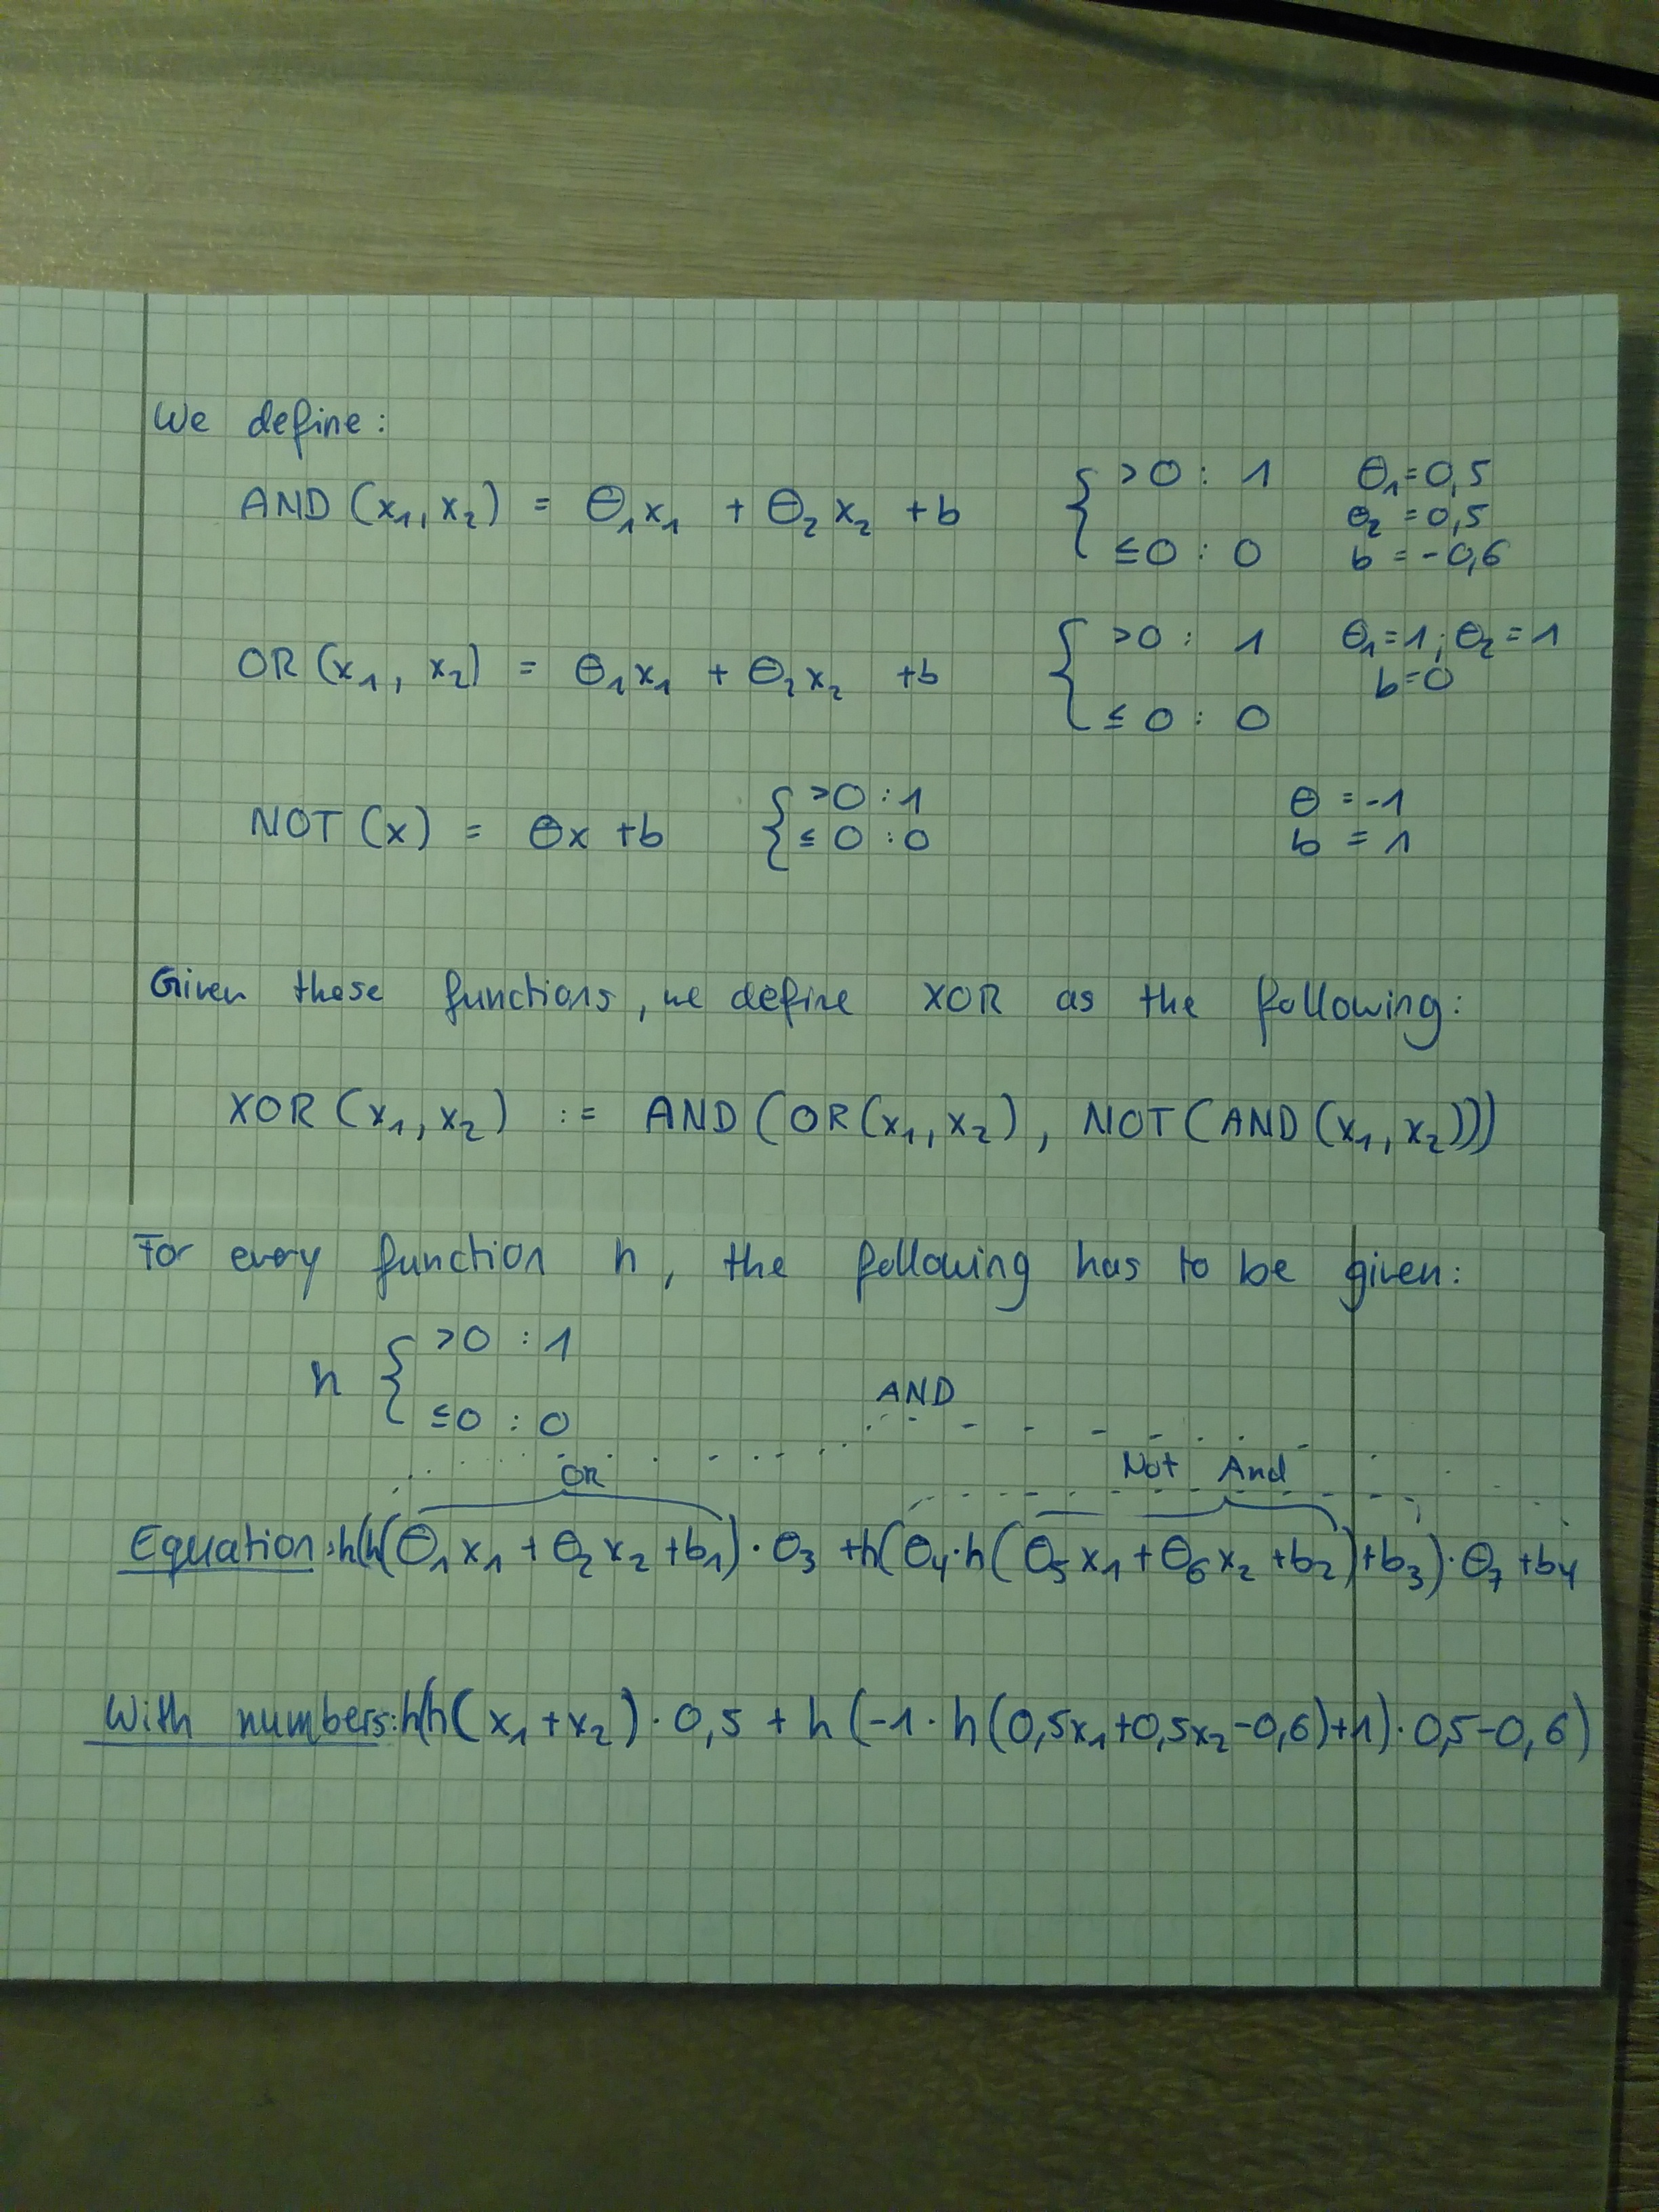 We define:
AND (x₁, x₂) = Θ₁x₁ + Θ₂x₂ + b { >0 : 1 Θ₁=0,5
Θ₂=0,5
≤0 : 0 b = -0,6
OR (x₁, x₂) = Θ₁x₁ + Θ₂x₂ +b { >0 : 1 Θ₁=1; Θ₂=1
b=0
≤ 0 : 0
NOT (x) = Θx +b { >0 : 1 Θ = -1
≤ 0 : 0 b = 1
Given these functions, we define XOR as the following:
XOR (x₁, x₂) := AND (OR(x₁, x₂), NOT(AND(x₁, x₂)))
For every function h, the following has to be given:
h { >0 : 1
≤0 : 0
AND
OR Not And
Equation: h(h(Θ₁x₁ + Θ₂x₂ + b₁) · Θ₃ + h(Θ₄·h(Θ₅x₁ + Θ₆x₂ + b₂) + b₃) · Θ₇ + b₄
With numbers: h(h(x₁+x₂) · 0,5 + h(-1 · h(0,5x₁+0,5x₂-0,6)+1) · 0,5-0,6)